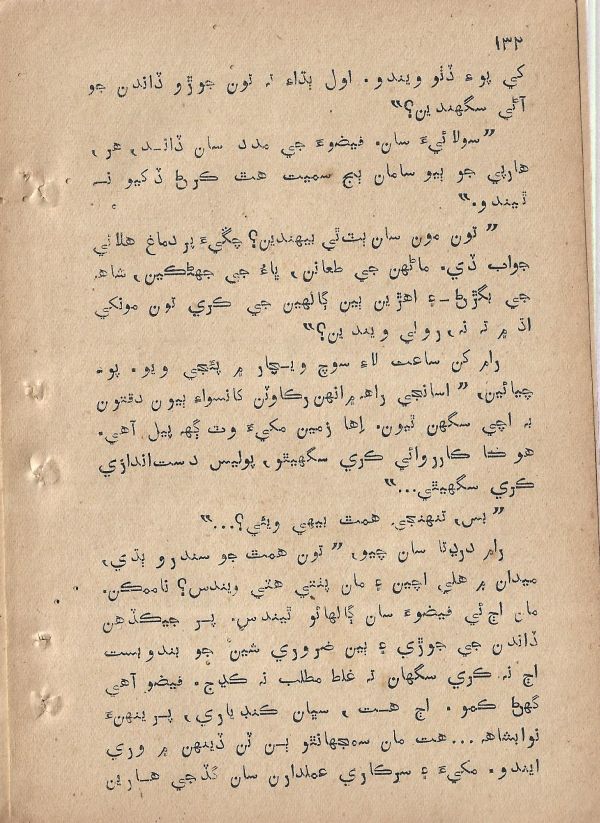 ۱۳۲
کي پوءِ ڏٺو ويندو. اول ٻڌاءِ تہ تون جوڙو ڏاندن جو
آڻي سگهندين؟"
"سولائيءَ سان. فيضوءَ جي مدد سان ڏاند، هر،
هارپي جو ٻيو سامان ٻج سميت هٿ ڪرڻ ڏکيو نہ
ٿيندو."
"تون مون سان پٽ ٿي بيهندين؟ چڱيءَ پر دماغ هلائي
جواب ڏي. ماڻهن جي طعانن، ڀاءُ جي جهڻڪين، شاهہ
جي بگڙڻ ۽ اهڙين ٻين ڳالهين جي ڪري تون مونکي
اڌ ۾ تہ نہ، رولي ويندين؟"
رام کن ساعت لاءِ سوچ ويچار ۾ پئجي ويو. پوءِ
چيائين، "اسانجي راهہ ۾ انهن رڪاوٽن کانسواءِ ٻيون دقتون
بہ اچي سگهن ٿيون. اها زمين مکيءَ وٽ ڳهہ پيل آهي.
هو ڪا ڪارروائي ڪري سگهيٿو، پوليس دست‌اندازي
ڪري سگهيٿي..."
"بس، تنهنجي همٿ بيهي ويئي؟..."
رام درڙتا سان چيو، "تون همٿ جو سندرو ٻڌي،
ميدان ۾ هلي اچين ۽ مان پٺتي هٽي ويندس؟ ناممڪن.
مان اڄ ئي فيضوءَ سان ڳالهائو ٿيندس. پر جيڪڏهن
ڏاندن جي جوڙي ۽ ٻين ضروري شين جو بندوبست
اڄ نہ ڪري سگهان تہ غلط مطلب نہ ڪڍج. فيضو آهي
گهڻ ڪمو. اڄ هت، سڀان ڪنڊياري، پرينهنءَ
نوابشاهہ... هت مان سمجهانٿو ٻن ٽن ڏينهن ۾ وري
ايندو. مکيءَ ۽ سرڪاري عملدارن سان گڏجي هارين